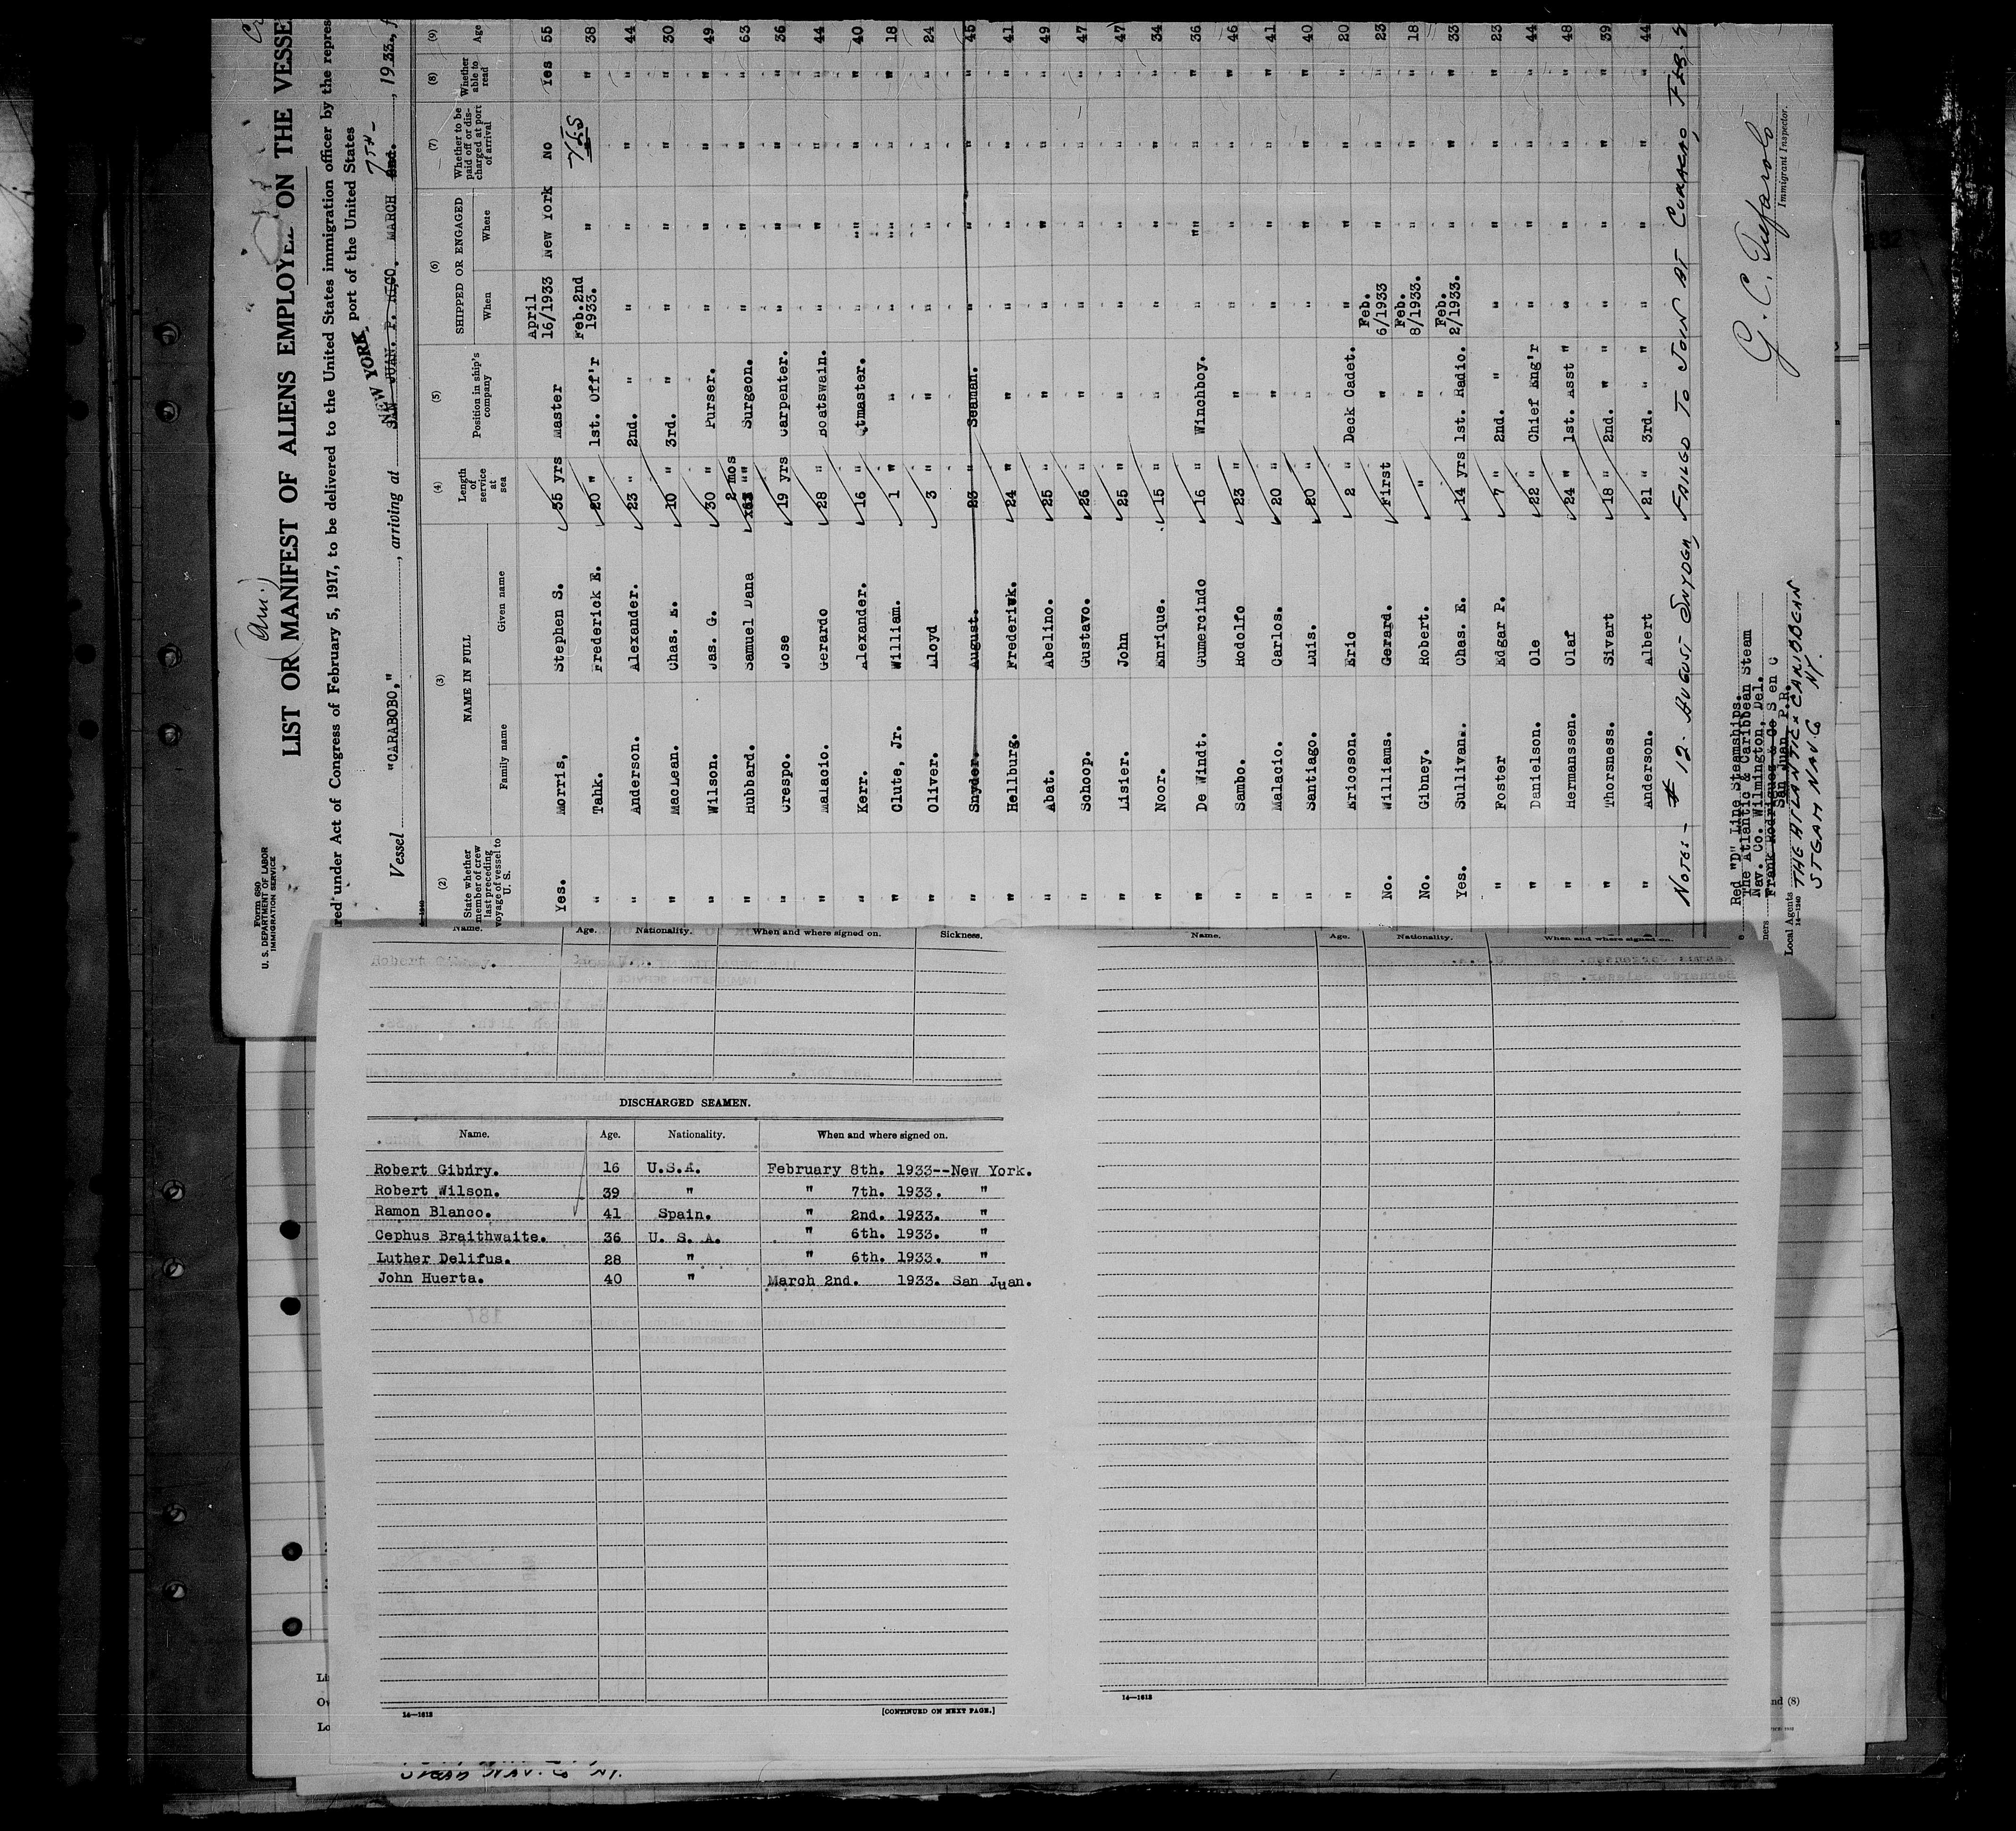 Form 680
U. S. DEPARTMENT OF LABOR
IMMIGRATION SERVICE
(Am.)
LIST OR MANIFEST OF ALIENS EMPLOYED ON THE VESSEL
red under Act of Congress of February 5, 1917, to be delivered to the United States immigration officer by the repres
port of the United States
NEW YORK 7TH-
Vessel "CARABOBO," , arriving at SAN JUAN. P. RICO. MARCH 2nd. , 1933, f
(2) (3) (4) (5) (6) (7) (8) (9)
State whether member of crew last preceding voyage of vessel to U. S. NAME IN FULL Length of service at sea Position in ship's company SHIPPED OR ENGAGED Whether to be paid off or discharged at port of arrival Whether able to read Age
Family name Given name When Where
Yes. Morris, Stephen S. 35 yrs Master April 16/1933 New York No Yes 55
" Tahk. Frederick E. 20 " 1st. Off'r Feb.2nd 1933. " YES " 38
" Anderson. Alexander. 23 " 2nd. " " " " " 44
" MacLean. Chas. E. 10 " 3rd. " " " " " 30
" Wilson. Jas. G. 30 " Purser. " " " " 49
" Hubbard. Samuel Dana 2 mos Surgeon. " " " " 63
" Crespo. Jose 19 yrs Carpenter. " " " " 36
" Malacio. Gerardo 28 " Boatswain. " " " " 44
" Kerr. Alexander. 16 " Qtmaster. " " " " 40
" Clute, Jr. William. 1 " " " " " " 18
" Oliver. Lloyd 3 " " " " " " 24
" Snyder. August. 23 " Seaman. " " " " 45
" Hellburg. Frederick. 24 " " " " " " 41
" Abat. Abelino. 25 " " " " " " 49
" Schoop. Gustavo. 26 " " " " " " 47
" Lisier. John 25 " " " " " " 47
" Noor. Enrique. 15 " " " " " " 34
" De Windt. Gumercindo 16 " Winchboy. " " " " 36
" Sambo. Rodolfo 23 " " " " " " 46
" Malacio. Carlos. 20 " " " " " " 41
" Santiago. Luis. 20 " " " " " " 40
" Ericcson. Eric 2 " Deck Cadet. " " " " 20
No. Williams. Gerard. First " Feb. 6/1933 " " " 23
No. Gibney. Robert. " " Feb. 8/1933. " " " 18
Yes. Sullivan. Chas. E. 14 yrs 1st. Radio. Feb. 2/1933. " " " 33
" Foster Edgar P. 7 " 2nd. " " " " " 23
" Danielson. Ole 22 " Chief Eng'r " " " " 44
" Hermanssen. Olaf 24 " 1st. Asst " " " " " 48
" Thorsness. Sivart 18 " 2nd. " " " " " " 39
" Anderson. Albert 21 " 3rd. " " " " " " 44
NOTE:- # 12- AUGUST SNYDER, FAILED TO JOIN AT CURACAO, FEB. 2
Red "D" Line Steamships.
The Atlantic & Caribbean Steam
Nav. Co. Wilmington, Del.
Frank Rodriguez & Co S en C
San Juan P.R.
Local Agents THE ATLANTIC & CARIBBEAN
STEAM NAV. Co NY.
14—1240
G. C. Tufarolo
Immigrant Inspector.
Name. Age. Nationality. When and where signed on. Sickness.
Robert Gibney.
DISCHARGED SEAMEN.
Name. Age. Nationality. When and where signed on.
Robert Gibdry. 16 U.S.A. February 8th. 1933--New York.
Robert Wilson. 39 " " 7th. 1933. "
Ramon Blanco. 41 Spain. " 2nd. 1933. "
Cephus Braithwaite. 36 U. S. A. " 6th. 1933. "
Luther Delifus. 28 " " 6th. 1933. "
John Huerta. 40 " March 2nd. 1933. San Juan.
14—1613
[CONTINUED ON NEXT PAGE.]
Name. Age. Nationality. When and where signed on.
14—1613
nd (8)